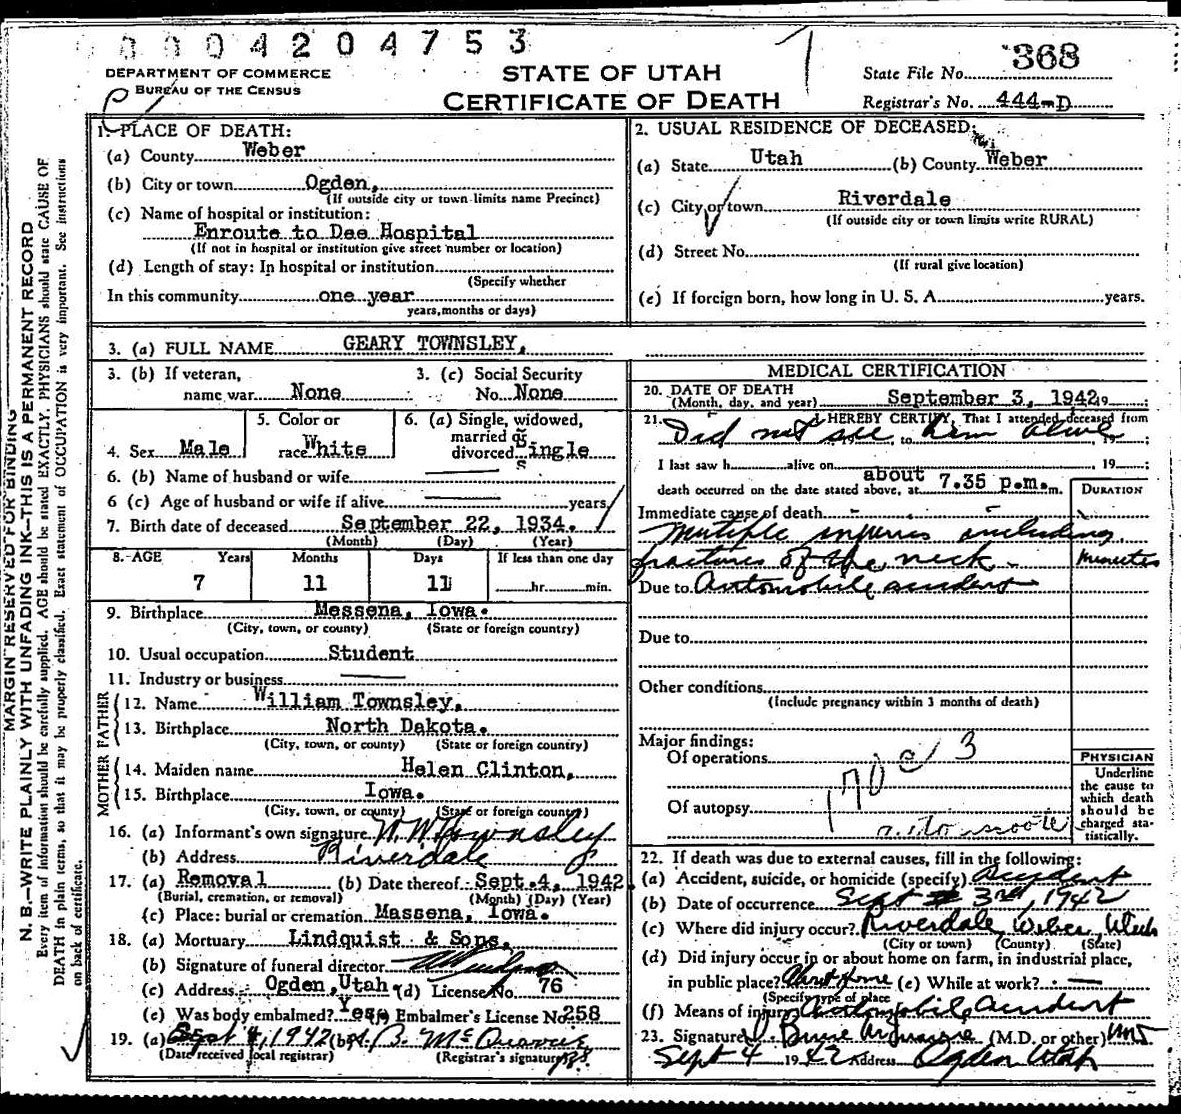 0004204753
DEPARTMENT OF COMMERCE
BUREAU OF THE CENSUS
STATE OF UTAH
CERTIFICATE OF DEATH
State File No. 368
Registrar's No. 444-D
MARGIN RESERVED FOR BINDING
N. B.—WRITE PLAINLY WITH UNFADING INK—THIS IS A PERMANENT RECORD
Every item of information should be carefully supplied. AGE should be stated EXACTLY. PHYSICIANS should state CAUSE OF
DEATH in plain terms, so that it may be properly classified. Exact statement of OCCUPATION is very important. See instructions
on back of certificate.
1. PLACE OF DEATH:
(a) County Weber
(b) City or town Ogden,
(If outside city or town limits name Precinct)
(c) Name of hospital or institution:
Enroute to Dee Hospital
(If not in hospital or institution give street number or location)
(d) Length of stay: In hospital or institution
(Specify whether
In this community one year
years, months or days)
2. USUAL RESIDENCE OF DECEASED:
(a) State Utah (b) County Weber
(c) City or town Riverdale
(If outside city or town limits write RURAL)
(d) Street No.
(If rural give location)
(e) If foreign born, how long in U. S. A. years.
3. (a) FULL NAME GEARY TOWNSLEY,
3. (b) If veteran, name war None
3. (c) Social Security No. None
4. Sex Male
5. Color or race White
6. (a) Single, widowed, married or divorced Single
6. (b) Name of husband or wife
6 (c) Age of husband or wife if alive years
7. Birth date of deceased September 22, 1934.
(Month) (Day) (Year)
8. AGE Years Months Days If less than one day
7 11 11 hr. min.
9. Birthplace Messena, Iowa.
(City, town, or county) (State or foreign country)
10. Usual occupation Student
11. Industry or business
FATHER
12. Name William Townsley,
13. Birthplace North Dakota.
(City, town, or county) (State or foreign country)
MOTHER
14. Maiden name Helen Clinton,
15. Birthplace Iowa.
(City, town, or county) (State or foreign country)
16. (a) Informant's own signature W. W. Townsley
(b) Address Riverdale
17. (a) Removal (b) Date thereof Sept. 4, 1942.
(Burial, cremation, or removal) (Month) (Day) (Year)
(c) Place: burial or cremation Massena, Iowa.
18. (a) Mortuary Lindquist & Sons,
(b) Signature of funeral director
(c) Address Ogden, Utah. (d) License No. 76
(e) Was body embalmed? Yes. Embalmer's License No. 258
19. (a) Sept 4, 1942 (b)
(Date received local registrar) (Registrar's signature)
MEDICAL CERTIFICATION
20. DATE OF DEATH
(Month, day, and year) September 3, 1942 19
21. I HEREBY CERTIFY, That I attended deceased from
Did not see to him alive 19
I last saw h alive on 19
death occurred on the date stated above, at about 7.35 p.m. m.
DURATION
Immediate cause of death
Multiple injuries including
fractures of the neck minutes
Due to Automobile accident
Due to
Other conditions
(Include pregnancy within 3 months of death)
Major findings:
Of operations
Of autopsy
170 c 3
PHYSICIAN
Underline
the cause to
which death
should be
charged sta-
tistically.
22. If death was due to external causes, fill in the following:
(a) Accident, suicide, or homicide (specify) Accident
(b) Date of occurrence Sept 3rd, 1942
(c) Where did injury occur? Riverdale, Weber, Utah
(City or town) (County) (State)
(d) Did injury occur in or about home on farm, in industrial place,
in public place? About Home (e) While at work?
(Specify type of place)
(f) Means of injury Automobile Accident
23. Signature (M.D. or other) MD
Sept 4 1942 Address Ogden Utah